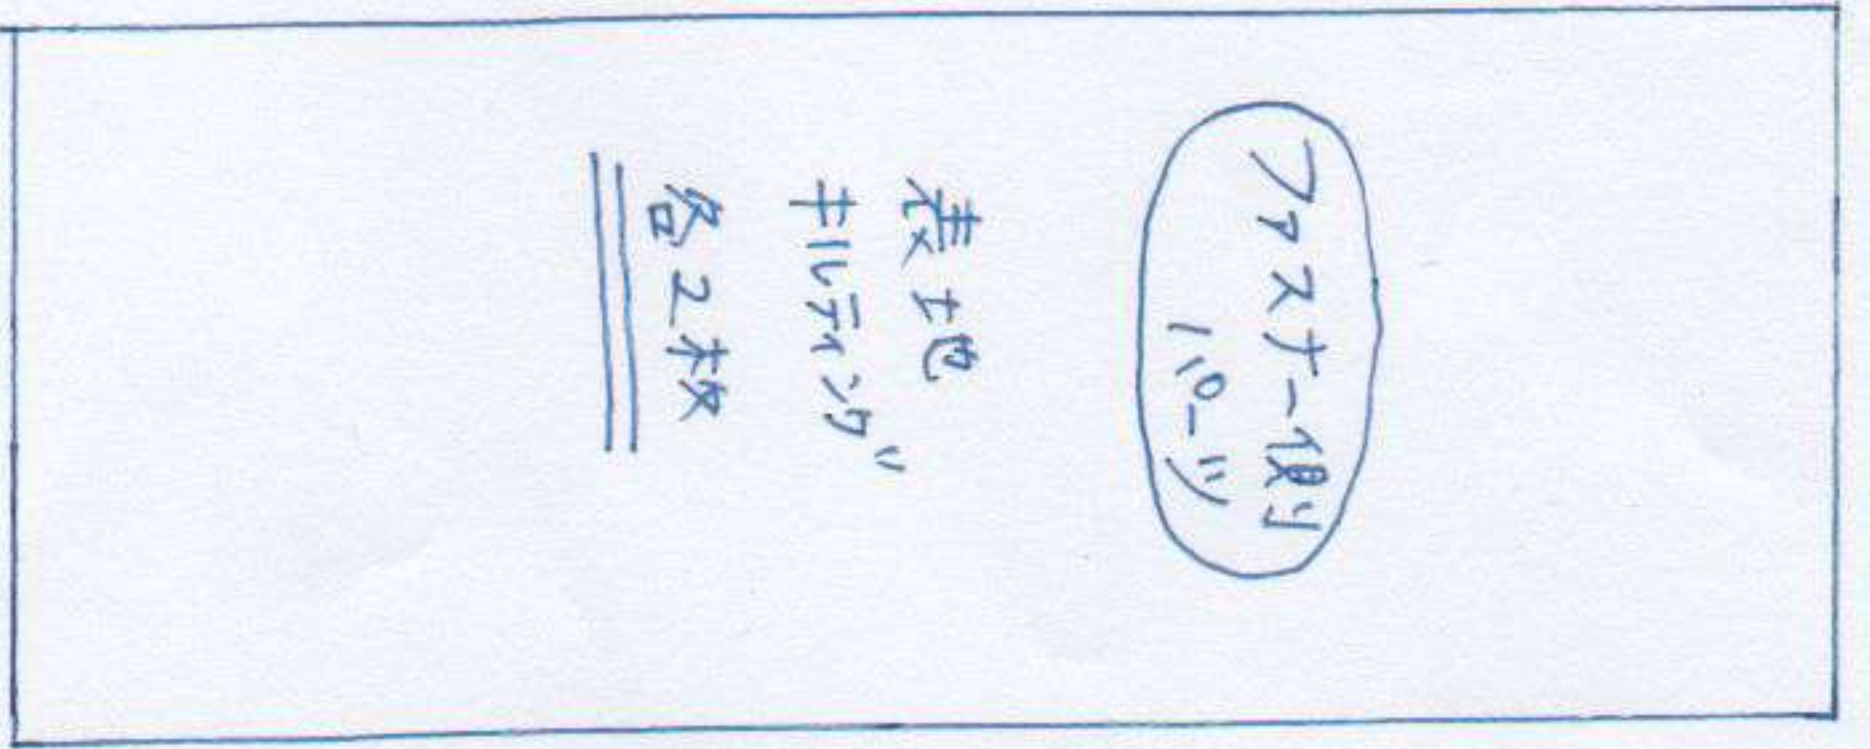 ファスナー側
パーツ
表地
キルティング
各2枚